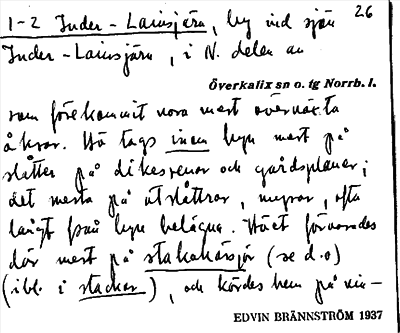 1-2 Inder-Lainsjärv, by vid sjön 26
Inder-Lainsjärv, i N. delen av
Överkalix sn o. tg Norrb. l.
som förekommit vora mest övervuxta
åkrar. Hö tags inom byn mest på
slåtter på dikesrenar och gårdsplaner;
det mesta på utslåttrar, myrar, ofta
långt från byn belägna. Höet förvarades
där mest på stakahässjor (se d.o)
(ibl. i stackar), och kördes hem på vin-
EDVIN BRÄNNSTRÖM 1937